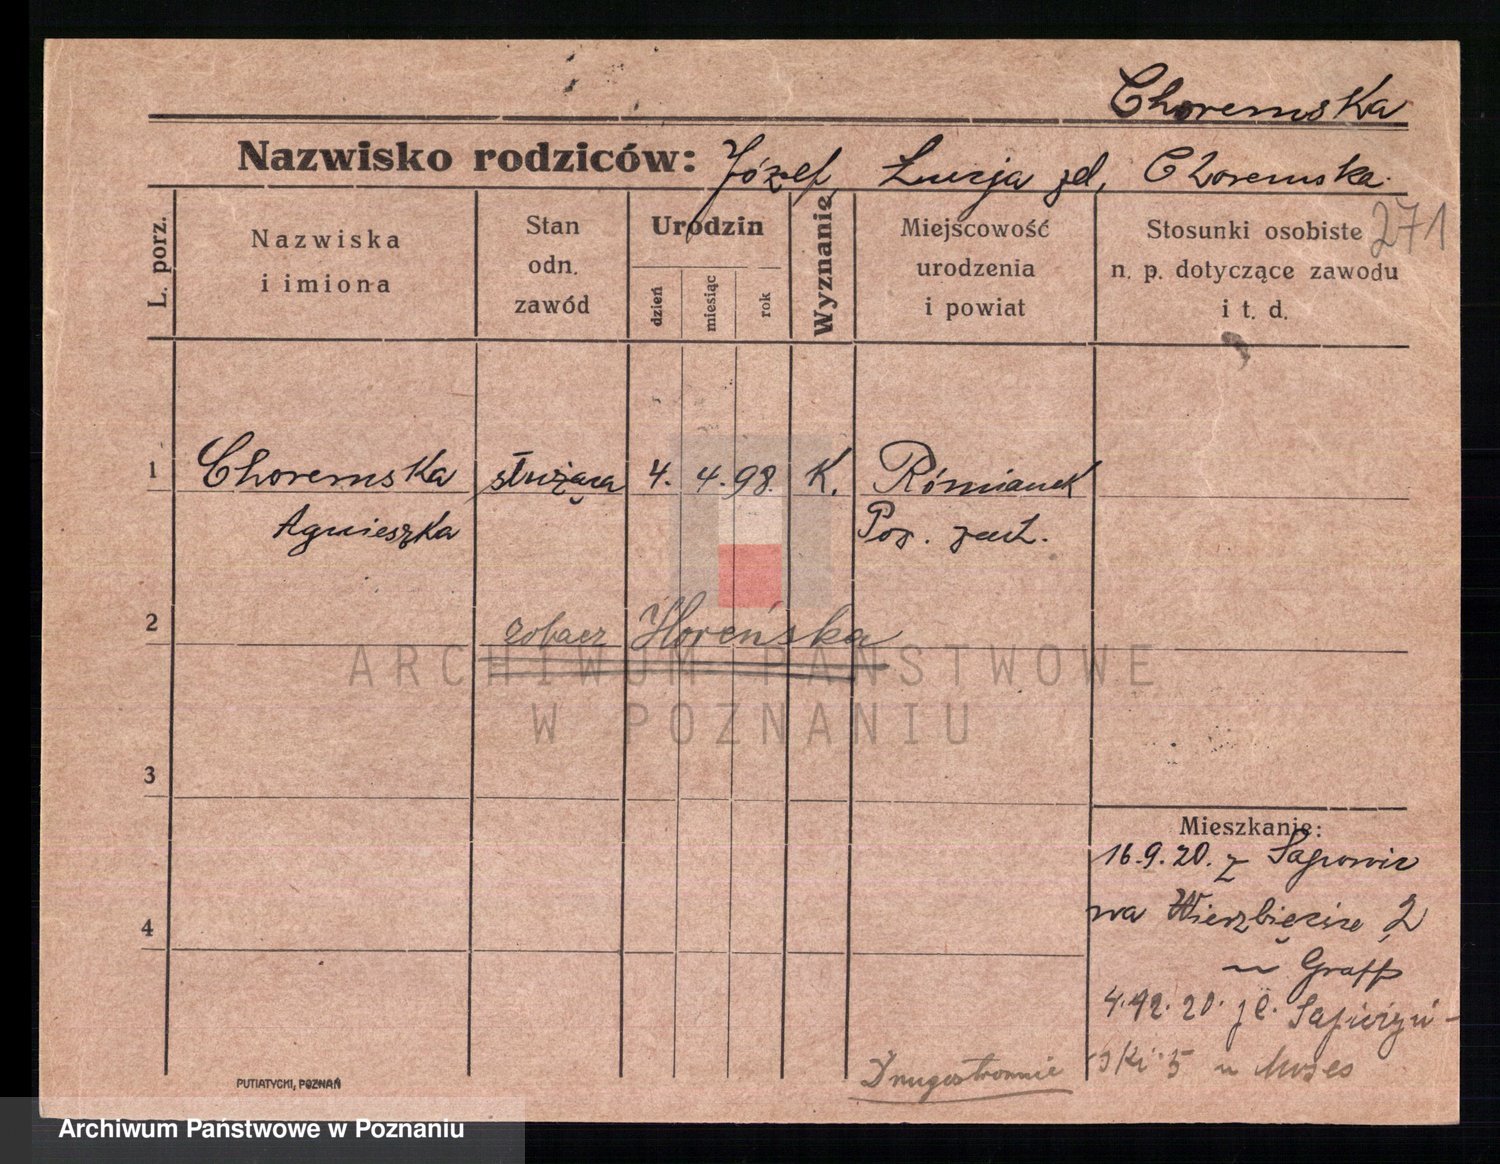 Choremska
Nazwisko rodziców: Józef, Łucja zd, Choremska.
271
L. porz.
Nazwiska
i imiona
Stan
odn.
zawód
Urodzin
dzień
miesiąc
rok
Wyznanie
Miejscowość
urodzenia
i powiat
Stosunki osobiste
n. p. dotyczące zawodu
i t. d.
1 Choremska służąca 4. 4. 98. K. Rómianek
Agnieszka Poz. zach.
2 zobacz Horeńska
ARCHIWUM PAŃSTWOWE
W POZNANIU
3
Mieszkanie:
16.9.20. z
na Wierzbięcice 2
4
u Graff
4.12.20. pl. Sapieżyń-
ski 5 u Moses
Drugostronnie
PUTIATYCKI, POZNAŃ
Archiwum Państwowe w Poznaniu